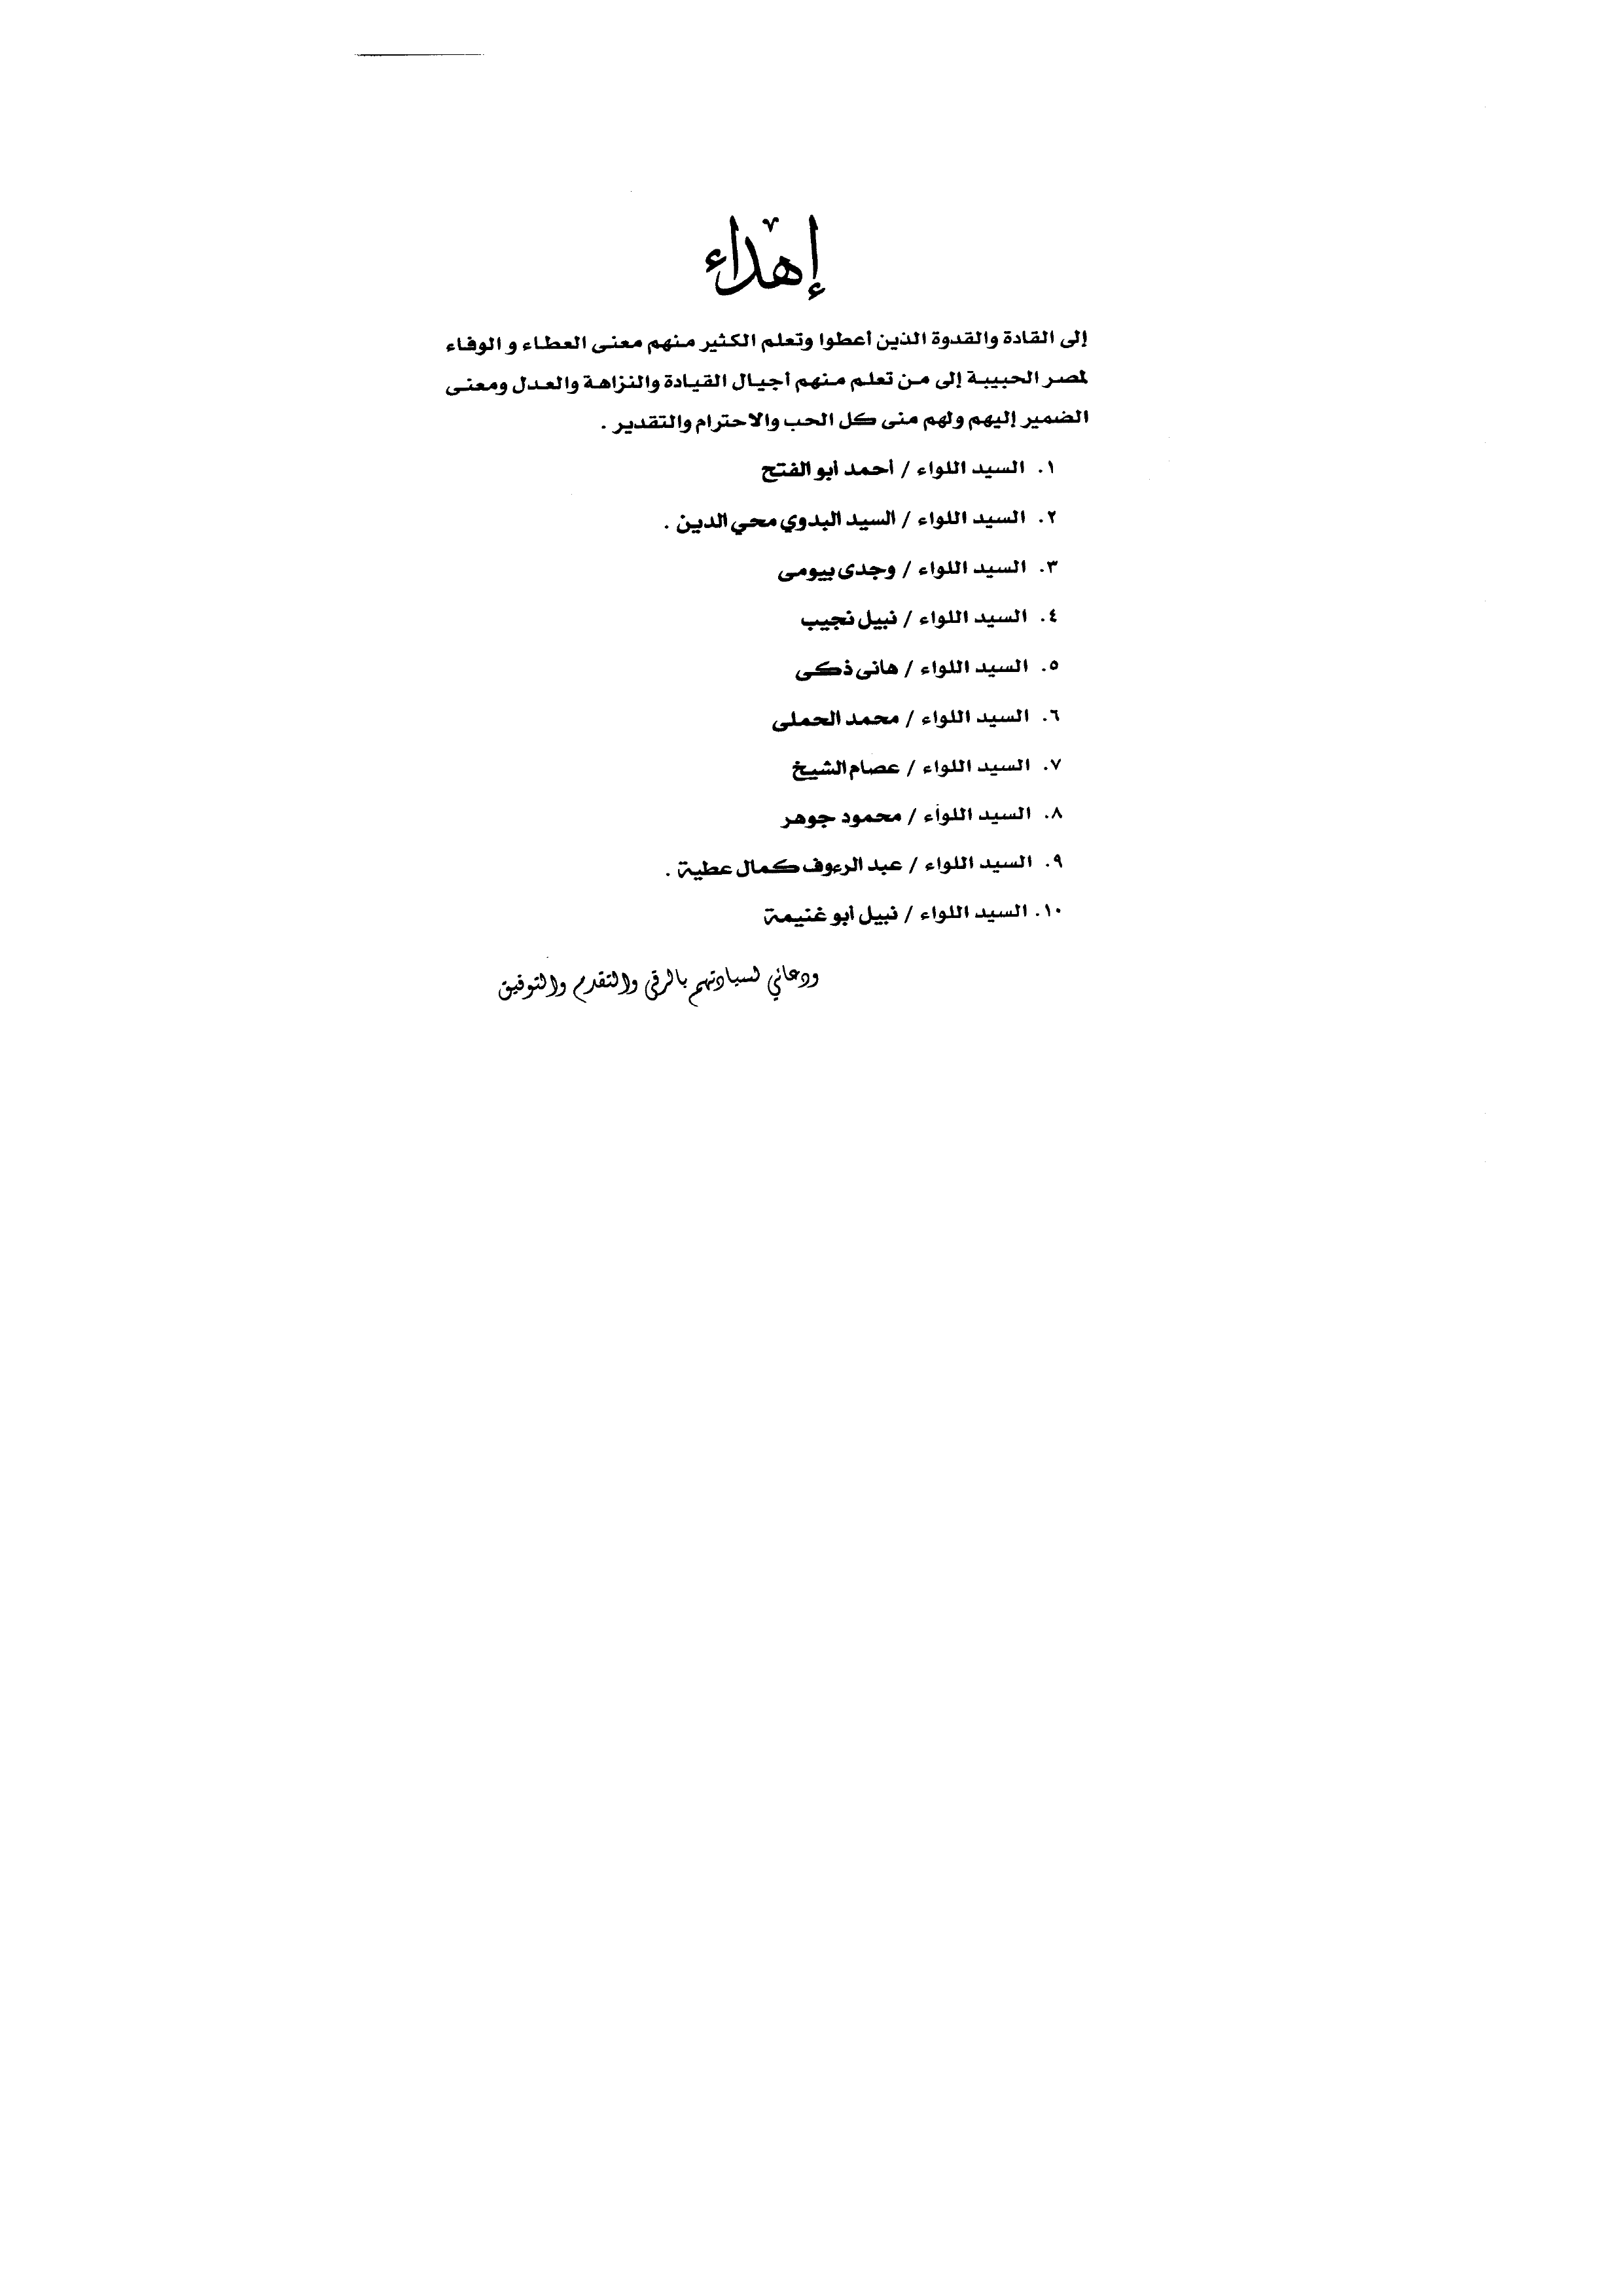 إهداء
إلى القادة والقدوة الذين أعطوا وتعلم الكثير منهم معنى العطاء و الوفاء
لمصر الحبيبة إلى من تعلم منهم أجيال القيادة والنزاهة والعدل ومعنى
الضمير إليهم ولهم منى كل الحب والاحترام والتقدير .
١. السيد اللواء / أحمد أبو الفتح
٢. السيد اللواء / السيد البدوي محي الدين .
٣. السيد اللواء / وجدى بيومى
٤. السيد اللواء / نبيل نجيب
٥. السيد اللواء / هانى ذكى
٦. السيد اللواء / محمد الحملى
٧. السيد اللواء / عصام الشيخ
٨. السيد اللواء / محمود جوهر
٩. السيد اللواء / عبد الرءوف كمال عطية .
١٠. السيد اللواء / نبيل ابو غنيمة
ودعائي لسيادتهم بالرقى والتقدم والتوفيق